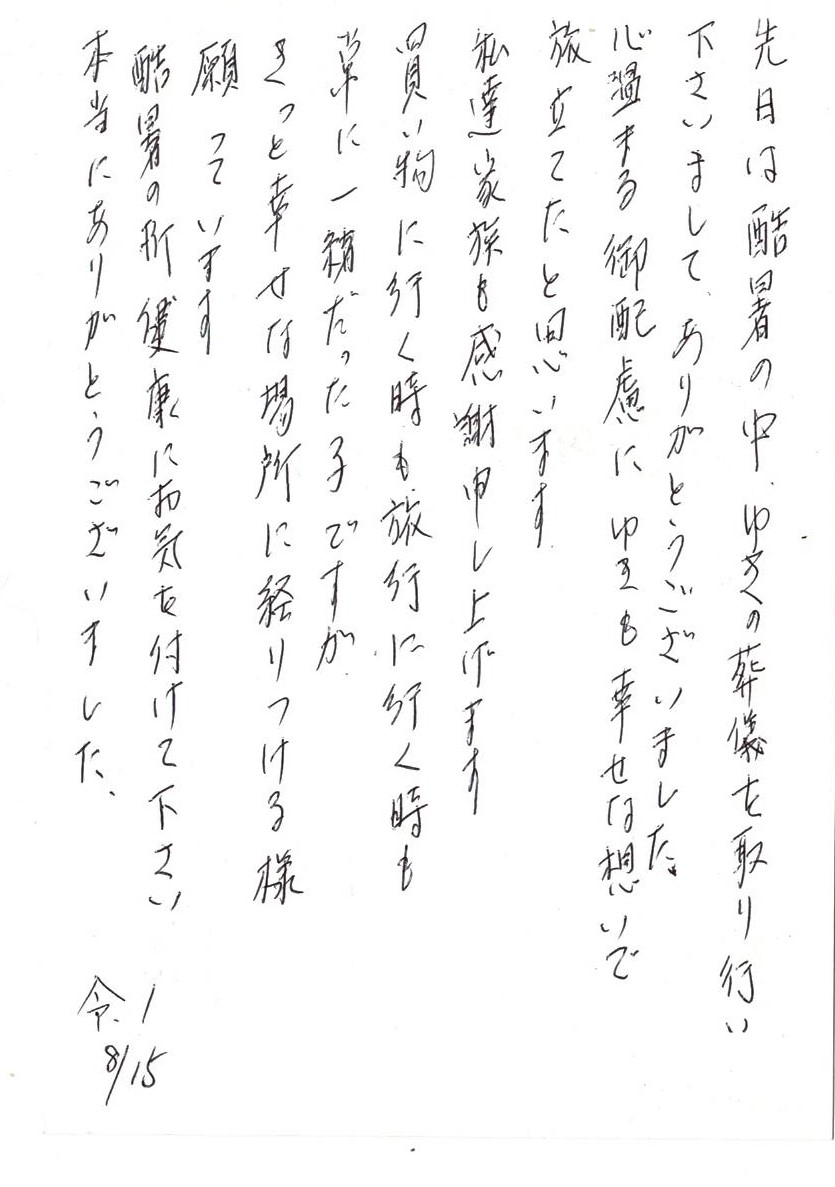 先日は酷暑の中、ゆきの葬儀を取り行い
下さいまして、ありがとうございました。
心温まる御配慮に ゆきも幸せな想いで
旅立てたと思います
私達家族も感謝申し上げます
買い物に行く時も、旅行に行く時も
常に一緒だった子ですが
きっと幸せな場所に経りつける様
願っています
酷暑の折 健康にお気を付けて下さい
本当にありがとうございました、
令、1
8/15